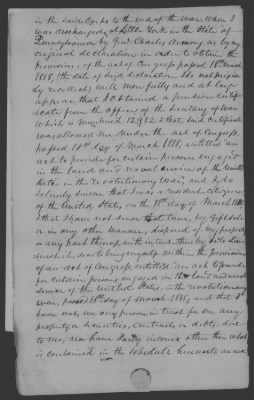 in the said Corps to the end of the war. When I
was discharged at Little York in the state of
Pennsylvania by Genl. Charles Armong as by my
original declaration in order to obtain the
provisions of the act of Congress passed 18th March
1818, the date of said declaration I do not precise
ly recollect will more fully and at large
appear that I obtained a pension Certifi
cate from the office of the Secretary of war
which is numbered 12,982 & that said Certificate
was allowed me under the act of Congress
passed 18th day of March 1818, entitled "an
act to provide for certain persons engaged
in the land and naval service of the United
States in the revolutionary war," and I do
solemnly swear that I was a resident citizen
of the United States on the 18th day of March 1818
& that I have not since that time, by Gift, sale
or in any other manner, disposed of my property
or any part thereof, with intent thereby so to dimi
nish it as to bring myself within the provisions
of an act of Congress entitled "an act to provide
for certain persons engaged in the land and naval
service of the United States, in the revolutionary
war, passed 18th day of March 1818, and that I
have not, nor any person in trust for me any
property or Securities, Contracts or debts, due
to me, nor have I any income other than what
is contained in the schedule hereunto annex